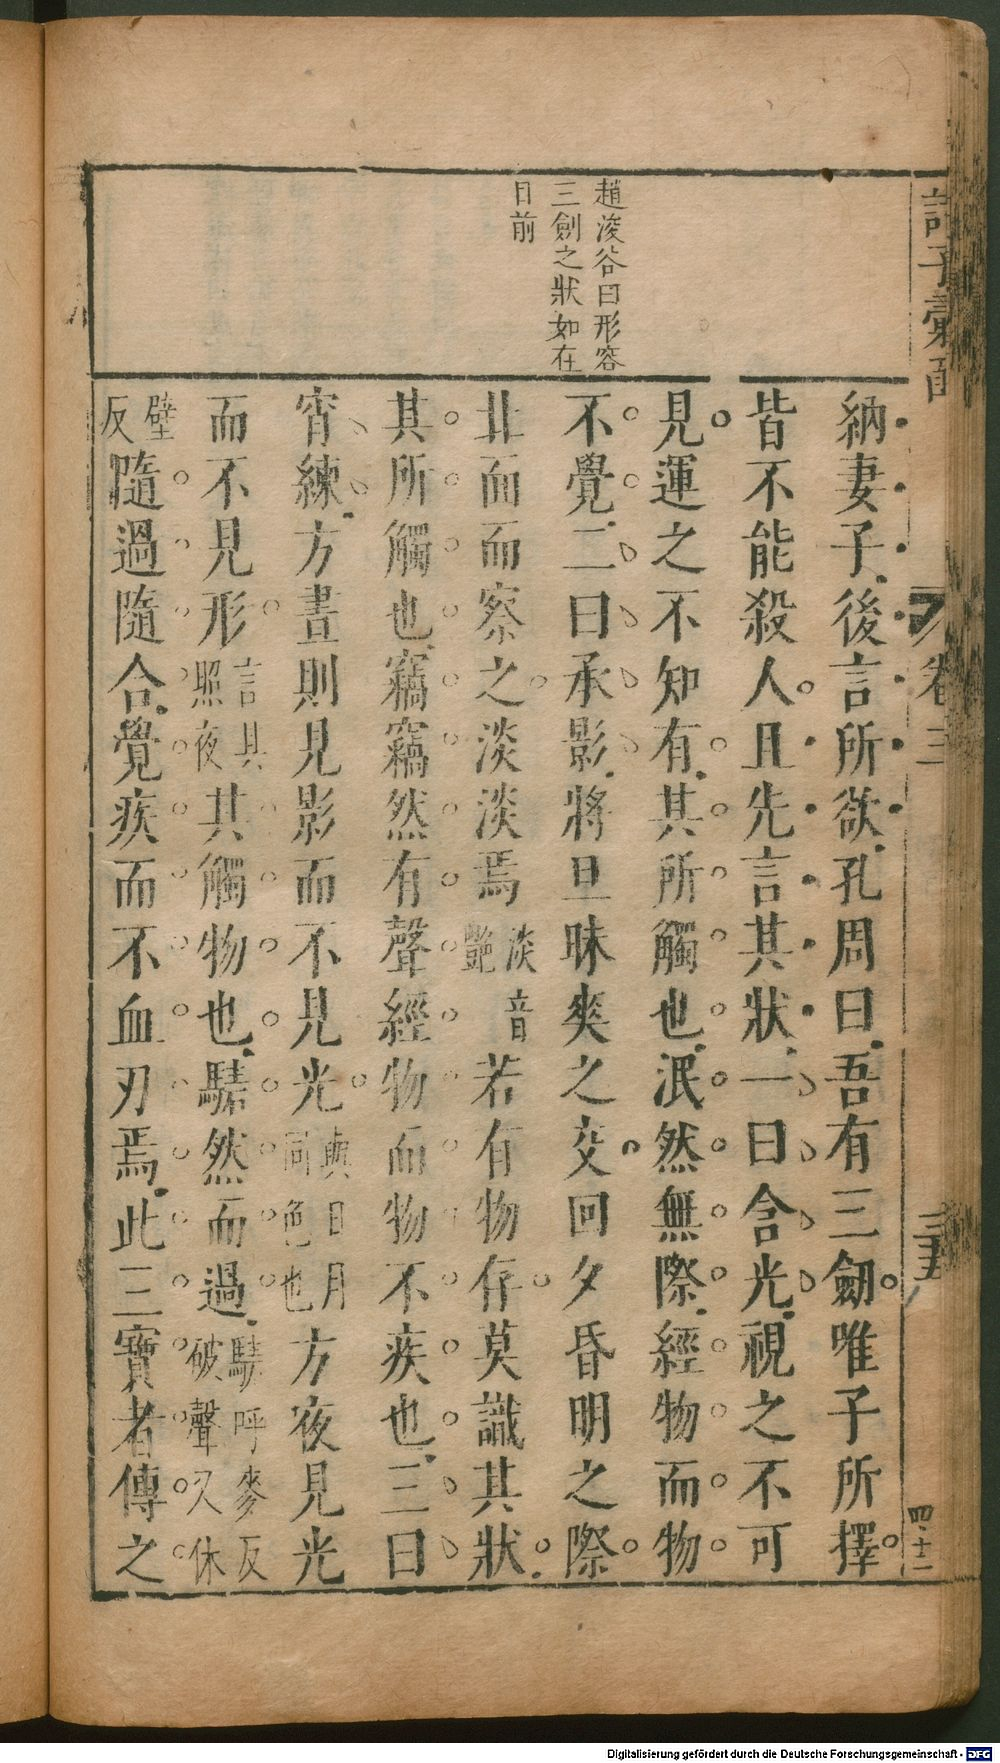 趙浚谷曰形容
三劍之狀如在
目前
納妻子後言所欲孔周曰吾有三劒唯子所擇
皆不能殺人且先言其狀一曰含光視之不可
見運之不知有其所觸也泯然無際經物而物
不覺二曰承影將旦昧爽之交回夕昏明之際
北面而察之淡淡焉淡音艷若有物存莫識其狀
其所觸也竊竊然有聲經物而物不疾也三曰
宵練方晝則見影而不見光與日月同色也方夜見光
而不見形言其照夜其觸物也騞然而過騞呼麥反破聲又休
壁反隨過隨合覺疾而不血刃焉此三寶者傳之
卷三
四十二
Digitalisierung gefördert durch die Deutsche Forschungsgemeinschaft - DFG